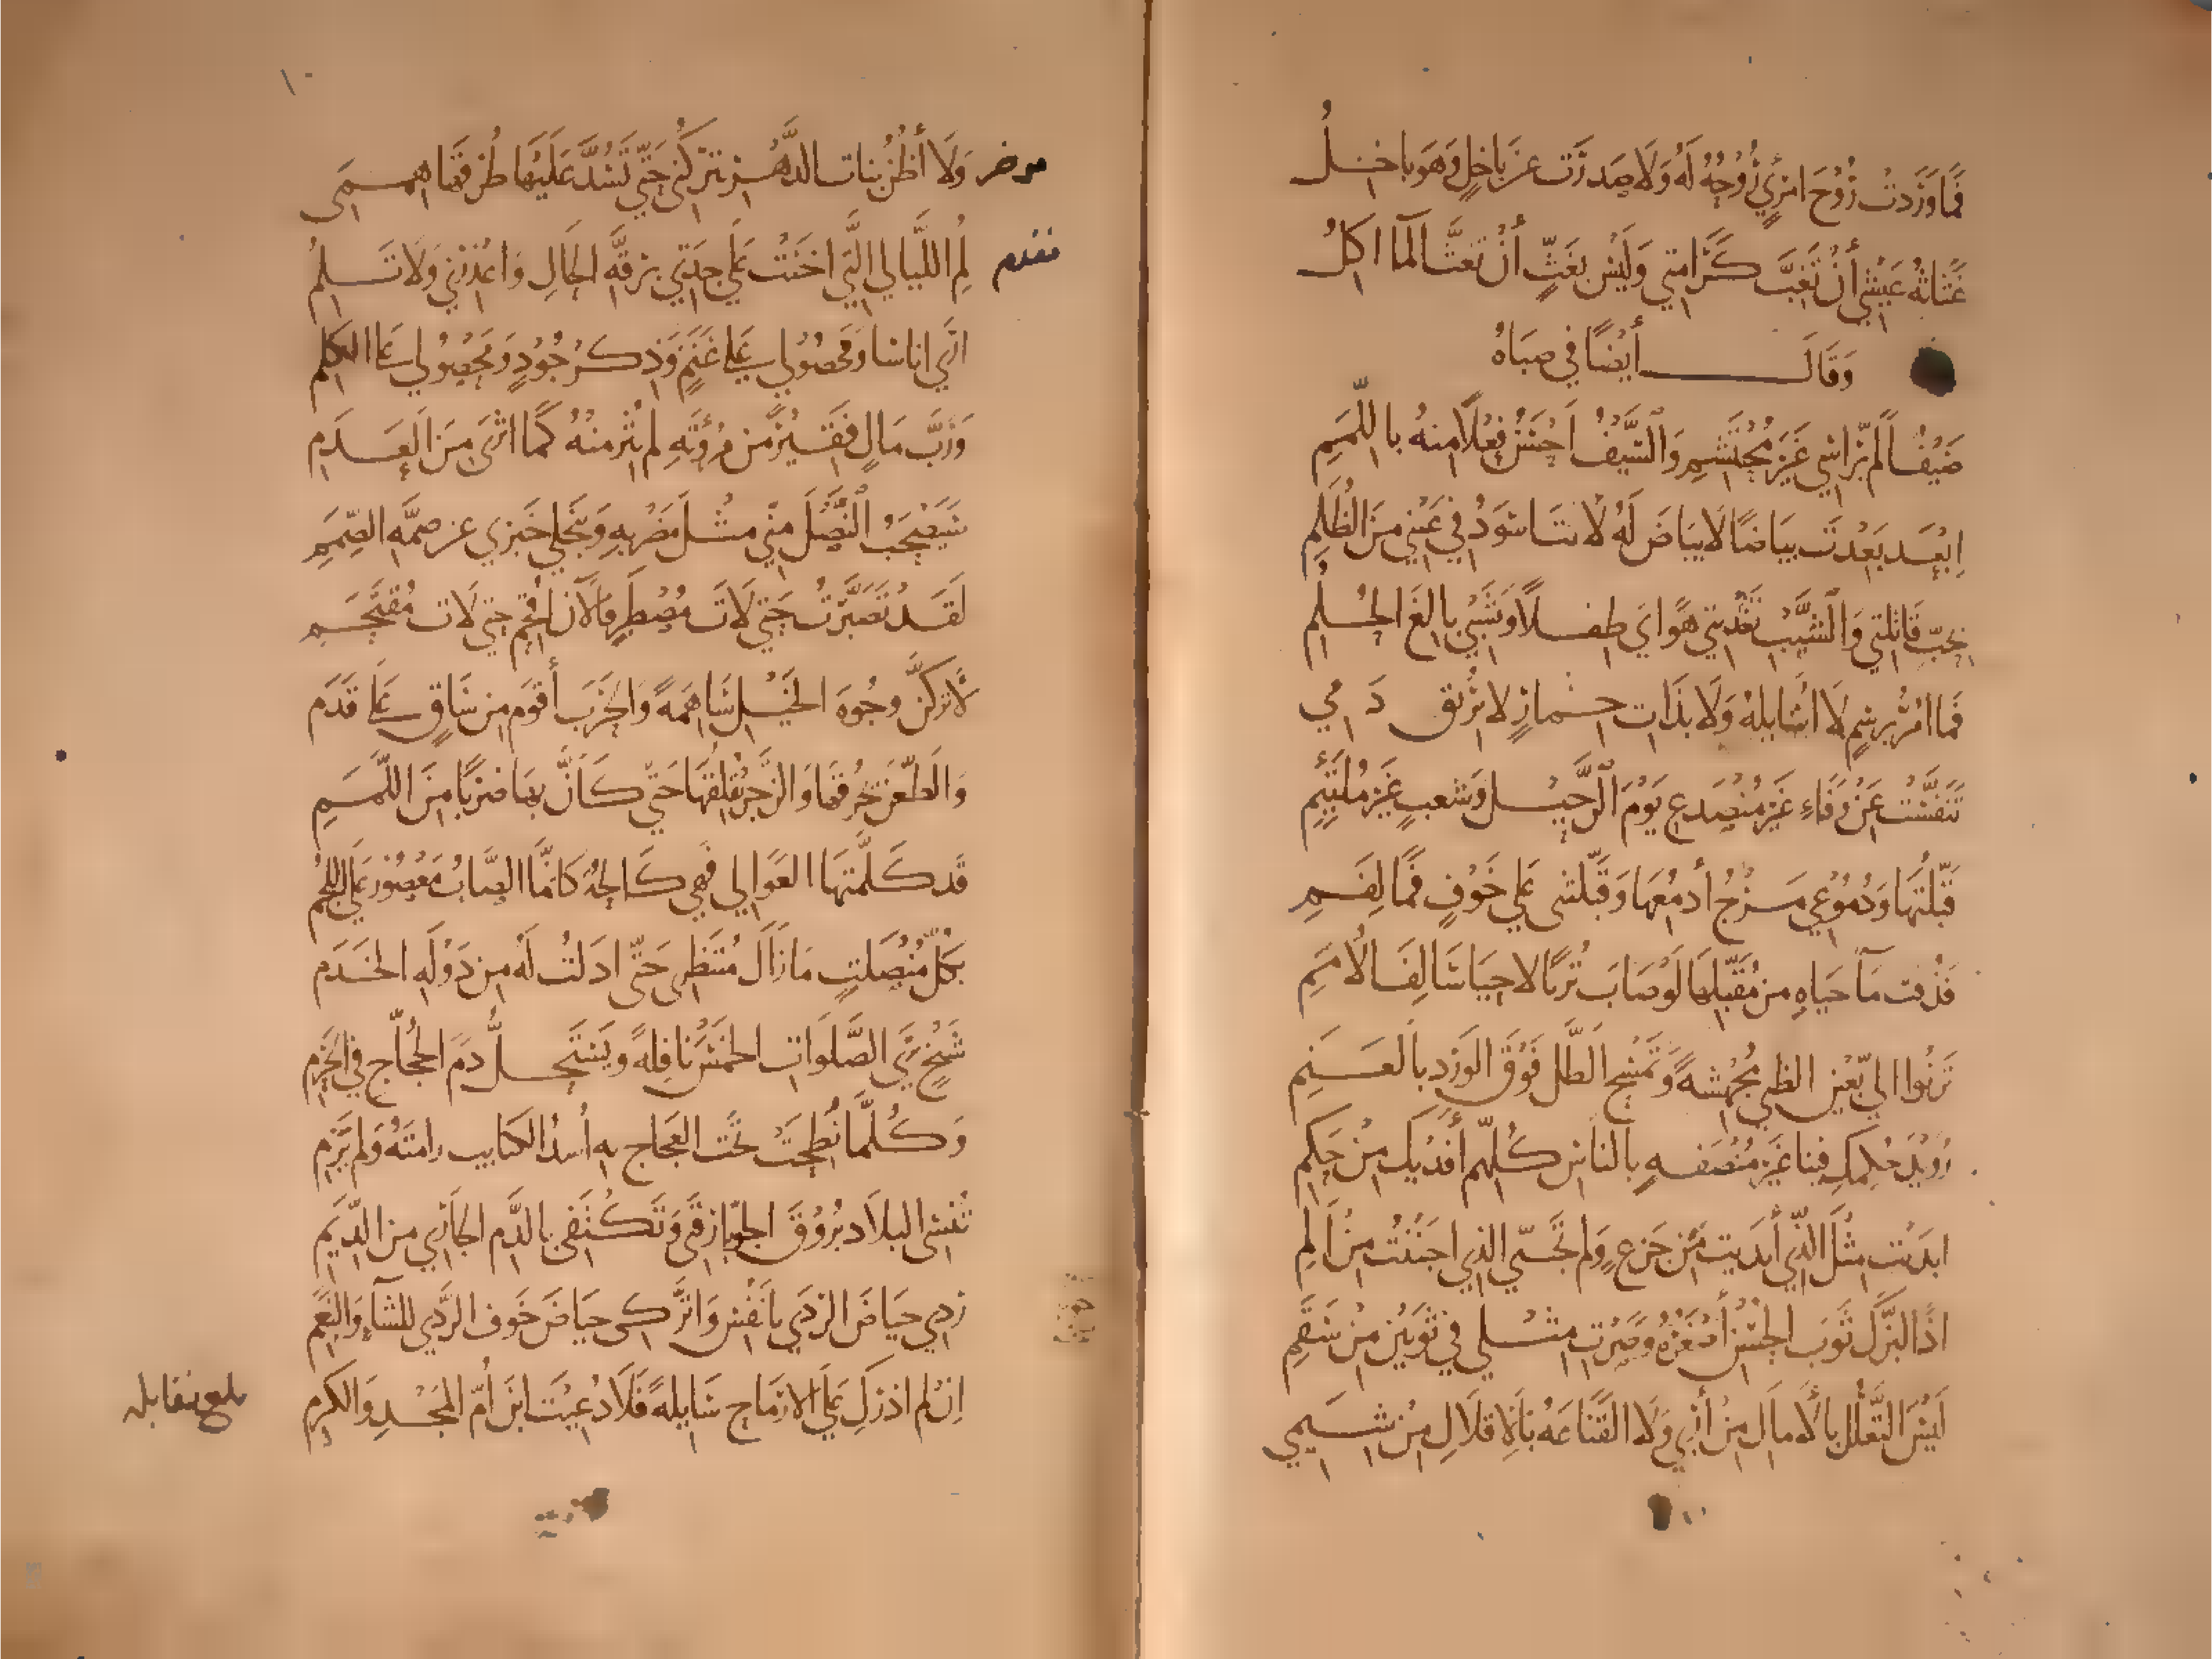 فَمَا وَرَدَتْ رُوْحَ امْرِيٍ رُوْحُهُ لَهُ وَلَا صَدَرَتْ عَنْ بَاخِلٍ وَهوَ بَاخِلُ
غَثَاثَةُ عَيْشِي أَنْ تَغِثَّ كَرَامَتِي وَلَيْسَ بِغَثٍّ أَنْ تَغَثَّ الْمَآكِلُ
وَقَالَ أَيْضًا فِي صِبَاهُ
ضَيْفٌ أَلَمَّ بِرَاسِي غَيْرَ مُحْتَشِمِ وَالسَّيْفُ احْسَنُ فِعْلًا مِنهُ بِاللِّمَمِ
ابْعَدْ بَعِدْتَ بَيَاضًا لَا بَيَاضَ لَهُ لَانتَ اسْوَدُ فِي عَيْنِي مِنَ الظُّلَمِ
بِحُبِّ قَاتِلَتِي وَالشَّيْبِ تَغْذِيَتِي هَوَايَ طِفلًا وَشَيْبِي بَالِغَ الْحُلُمِ
فَمَا امُرُّ بِرَسْمٍ لَا اسَايِلُهُ وَلَا بِذَاتِ خِمَارٍ لَا تُرِيقُ دَمِي
تَنَفَّسَتْ عَنْ وَفَاءٍ غَيْرِ مُنْصَدِعٍ يَوْمَ الرَّحِيْلِ وَشَعبٍ غَيْرِ مُلْتَئِمِ
قَبَّلْتُهَا وَدُمُوعِي مَزْجُ أَدمُعِهَا وَقَبَّلَتْنِى عَلَى خَوْفٍ فَمًا لِفَمِ
فَذُقتُ مَآ حَيَاهٍ مِن مُقَبَّلِهَا لَوْ صَابَ تُرْبًا لاحيَا سَالِفَ الأُمَمِ
تَرْنُوا الِيَّ بِعَيْنِ الظبي مُجْهِشَهً وَتَمْسَحُ الطَّلَّ فَوْقَ الوَرْدِ بِالعَنَمِ
رُوَيْدَ حُكْمِكِ فِينَا غَيْرَ مُنْصِفَهٍ بِالنَاسِ كُلِّهِم أَفْدِيْكِ مِنْ حَكَمِ
ابدَيْتِ مِثْلَ الَّذِي أَبدَيتُ مِنْ جَزَعٍ وَلَم تُجِنِّي الذِي اجنَنْتُ مِنْ أَلَمِ
اذًا لَبَزَّكِ ثَوْبَ الحُسْنِ أَصْغَرُهُ وَصِرْتِ مِثْلِي فِي ثَوبَيْنِ مِنْ سَقَمِ
لَيْسَ التَّعَلُّلُ بِالْآمَالِ مِنْ أَرَبِي وَلَا القَنَاعَهُ بِالْاِقلَالِ مِنْ شِيَمِي
وَلَا أَظُنُّ بَناتِ الدَّهْرِ تَتْرُكُنِى حَتّى تَسُدَّ عَلَيْهَا طُرْقَهَا هِمَمِى
لُمِ اللَّيَالِي الَّتِي اخنَتْ عَلَى جِدَتِي بِرِقَّهِ الحَالِ وَاعْذِرْنِي وَلَا تَلُمِ
ارَى اناسًا وَمَحصُوْلِي عَلَى غَنَمٍ وَذِكْرَ جُودٍ وَمَحْصُوْلِي عَلَى الكَلِمِ
وَرُبَّ مَالٍ فَقِيْرًا مِن مُرُوَّتِهِ لَم يُثرِ مِنهُ كَمَا اثْرَى مِنَ العَدَمِ
سَيَصْحَبُ النَّصْلُ مِنّي مِثْلَ مَضْرِبِهِ وَيَنْجَلِي خَبَرِي عَن صِمَّهِ الصِّمَمِ
لَقَدْ تَصَبَّرْتُ حَتَّى لَاتَ مُصْطَبَرٍ فَالْآنَ اقْحَمُ حَتَّى لَاتَ مُقْتَحَمِ
لَاتْرُكَنَّ وُجُوهَ الخَيْلِ سَاهِمَهً وَالحَرْبَ أَقْوَمَ مِن سَاقٍ عَلَى قَدَمِ
وَالطَّعْنُ يُحْرِقُهَا وَالزَّجْرُ يُقْلِقُهَا حَتَّى كَأَنَّ بِهَا ضَرْبًا مِنَ اللَّمَمِ
قَد كَلَّمَتْهَا العَوَالِي فَهْيَ كَالِحَهٌ كَانَّمَا الصَّابُ مَعْصُورٌ عَلَى اللُّجُمِ
بِكُلِّ مُنْصَلِتٍ مَا زَالَ مُنتَظِرِى حَتَّى ادَلْتُ لَهُ مِن دَوْلَهِ الخَدَمِ
شَيْخٍ يَرَى الصَّلَوَاتِ الخَمْسَ نَافِلَهً وَيَسْتَحِلُّ دَمَ الحُجَّاجِ فِي الحَرَمِ
وَكُلَّمَا نُطِحَتْ تَحْتَ العَجَاجِ بِهِ أُسْدُ الكَتَايِبِ رَامَتْهُ وَلَم يَرِمِ
تُنْسِى البلَادَ بُرُوْقَ الجَوِّ بَارِقَتِى وَتَكْتَفِى بِالدَّمِ الجَارِي مِنَ الدِّيَمِ
رِدِي حِيَاضَ الرَّدَى يَا نَفْسُ وَاتْرُكِى حِيَاضَ خَوْفِ الرَّدَى لِلشَّآءِ وَالنَّعَمِ
اِنْ لم اذَرْكِ عَلَى الارْمَاحِ سَايِلَهً فَلَا دُعِيْتُ ابْنَ أُمِّ المَجْدِ وَالكَرَمِ
بلغ مقابله